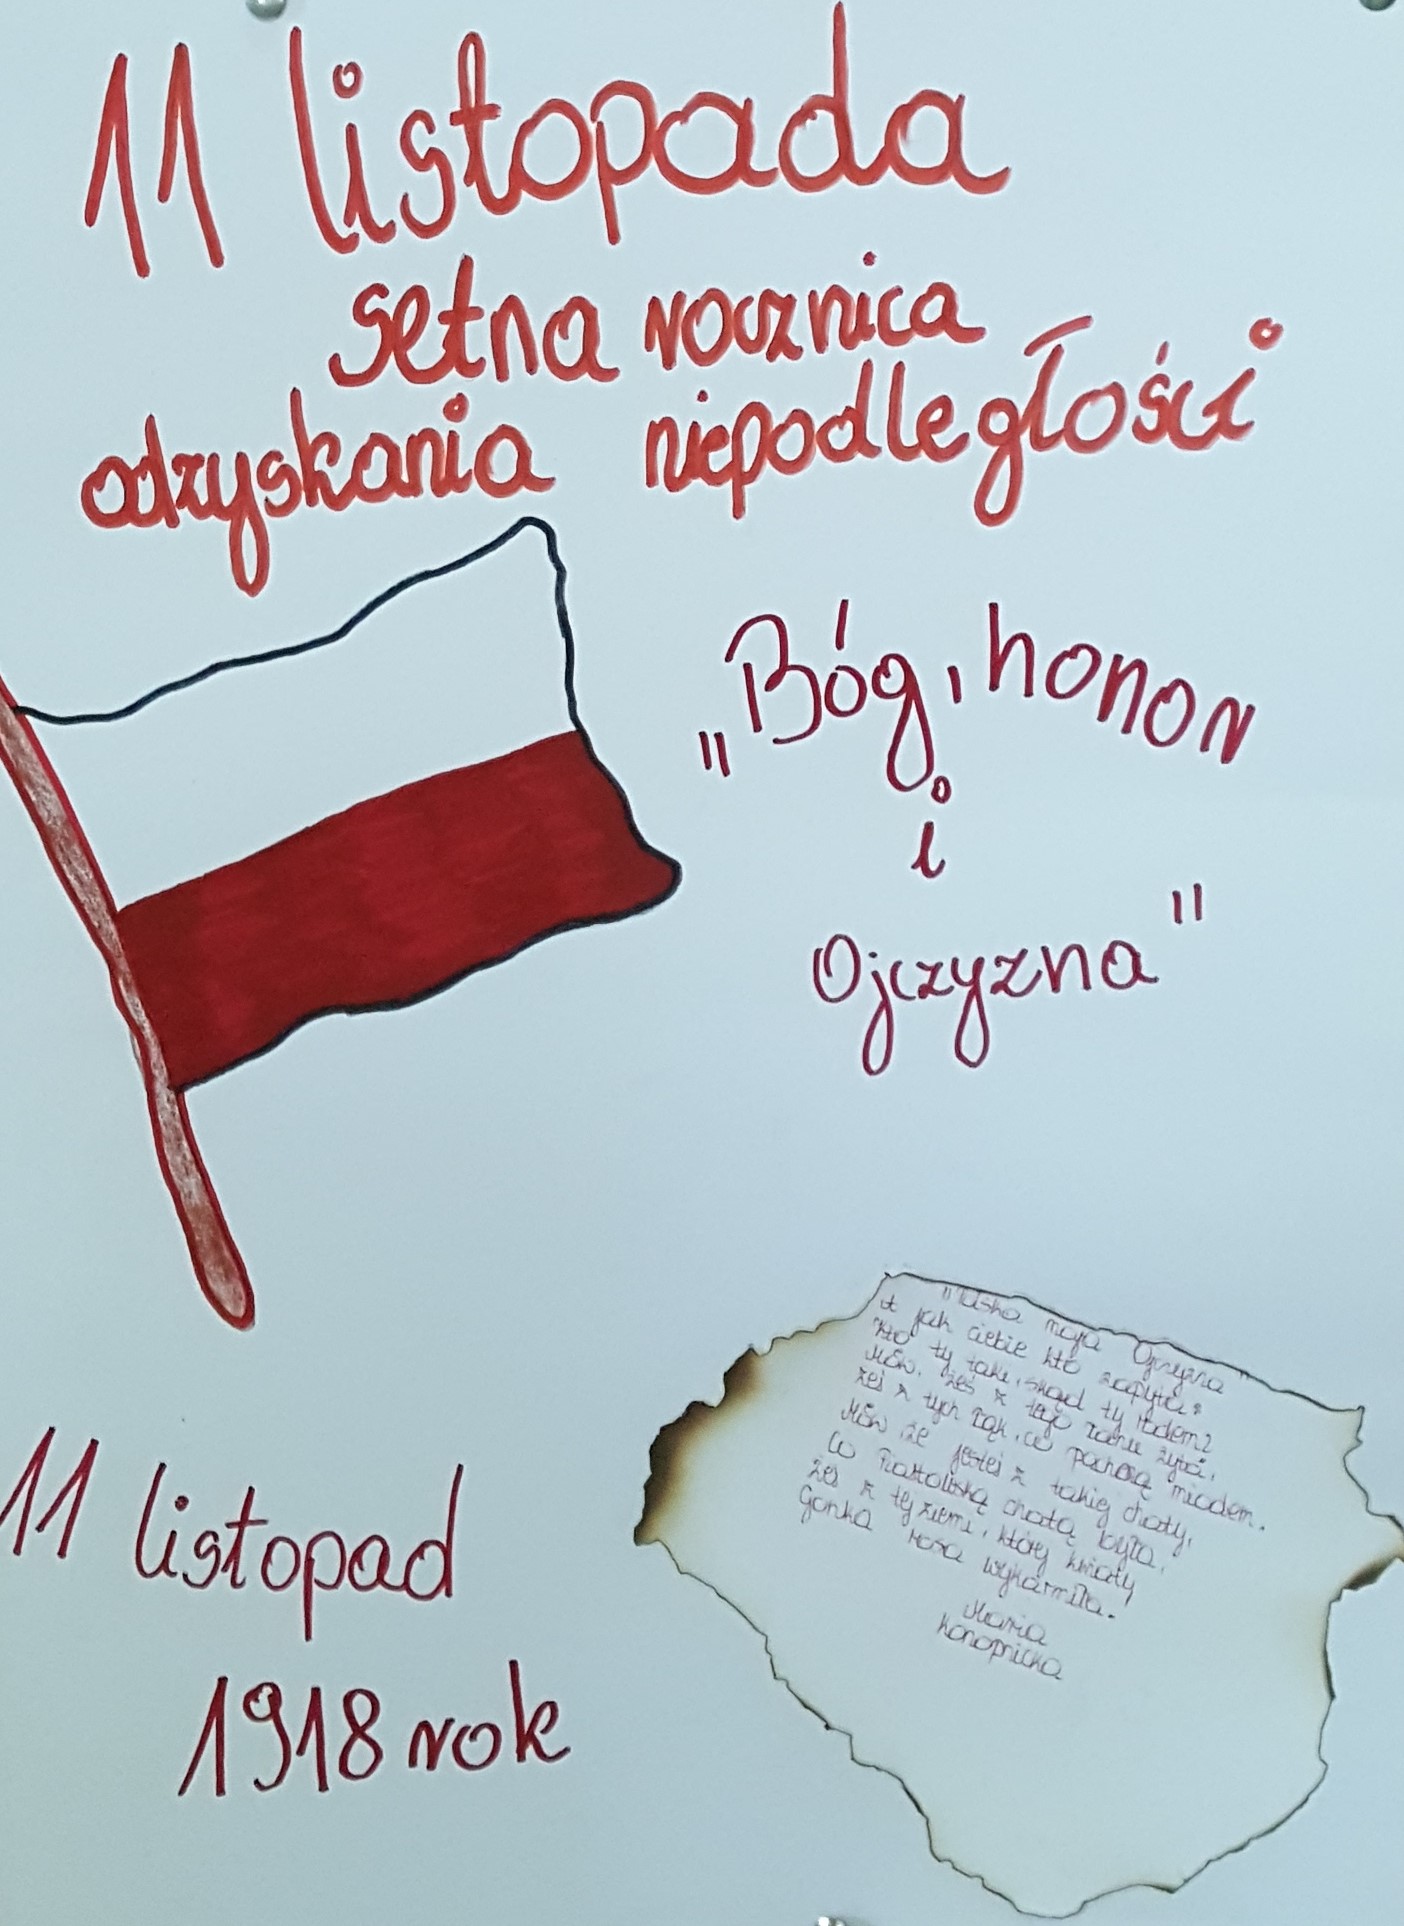 11 listopada
setna rocznica
odzyskania niepodległości
"Bóg, honor
i
Ojczyzna"
11 listopad
1918 rok
"Polska moja Ojczyzna"
A jak ciebie kto zapyta:
Kto ty taki, skąd ty rodem?
Mów, żeś z tego łanu żyta,
Żeś z tych łąk, co pachną miodem.
Mów że jesteś z takiej chaty,
Co Piastowską chatą była,
Żeś z tej ziemi, której kwiaty
Gorzka rosa wykarmiła.
Maria
Konopnicka